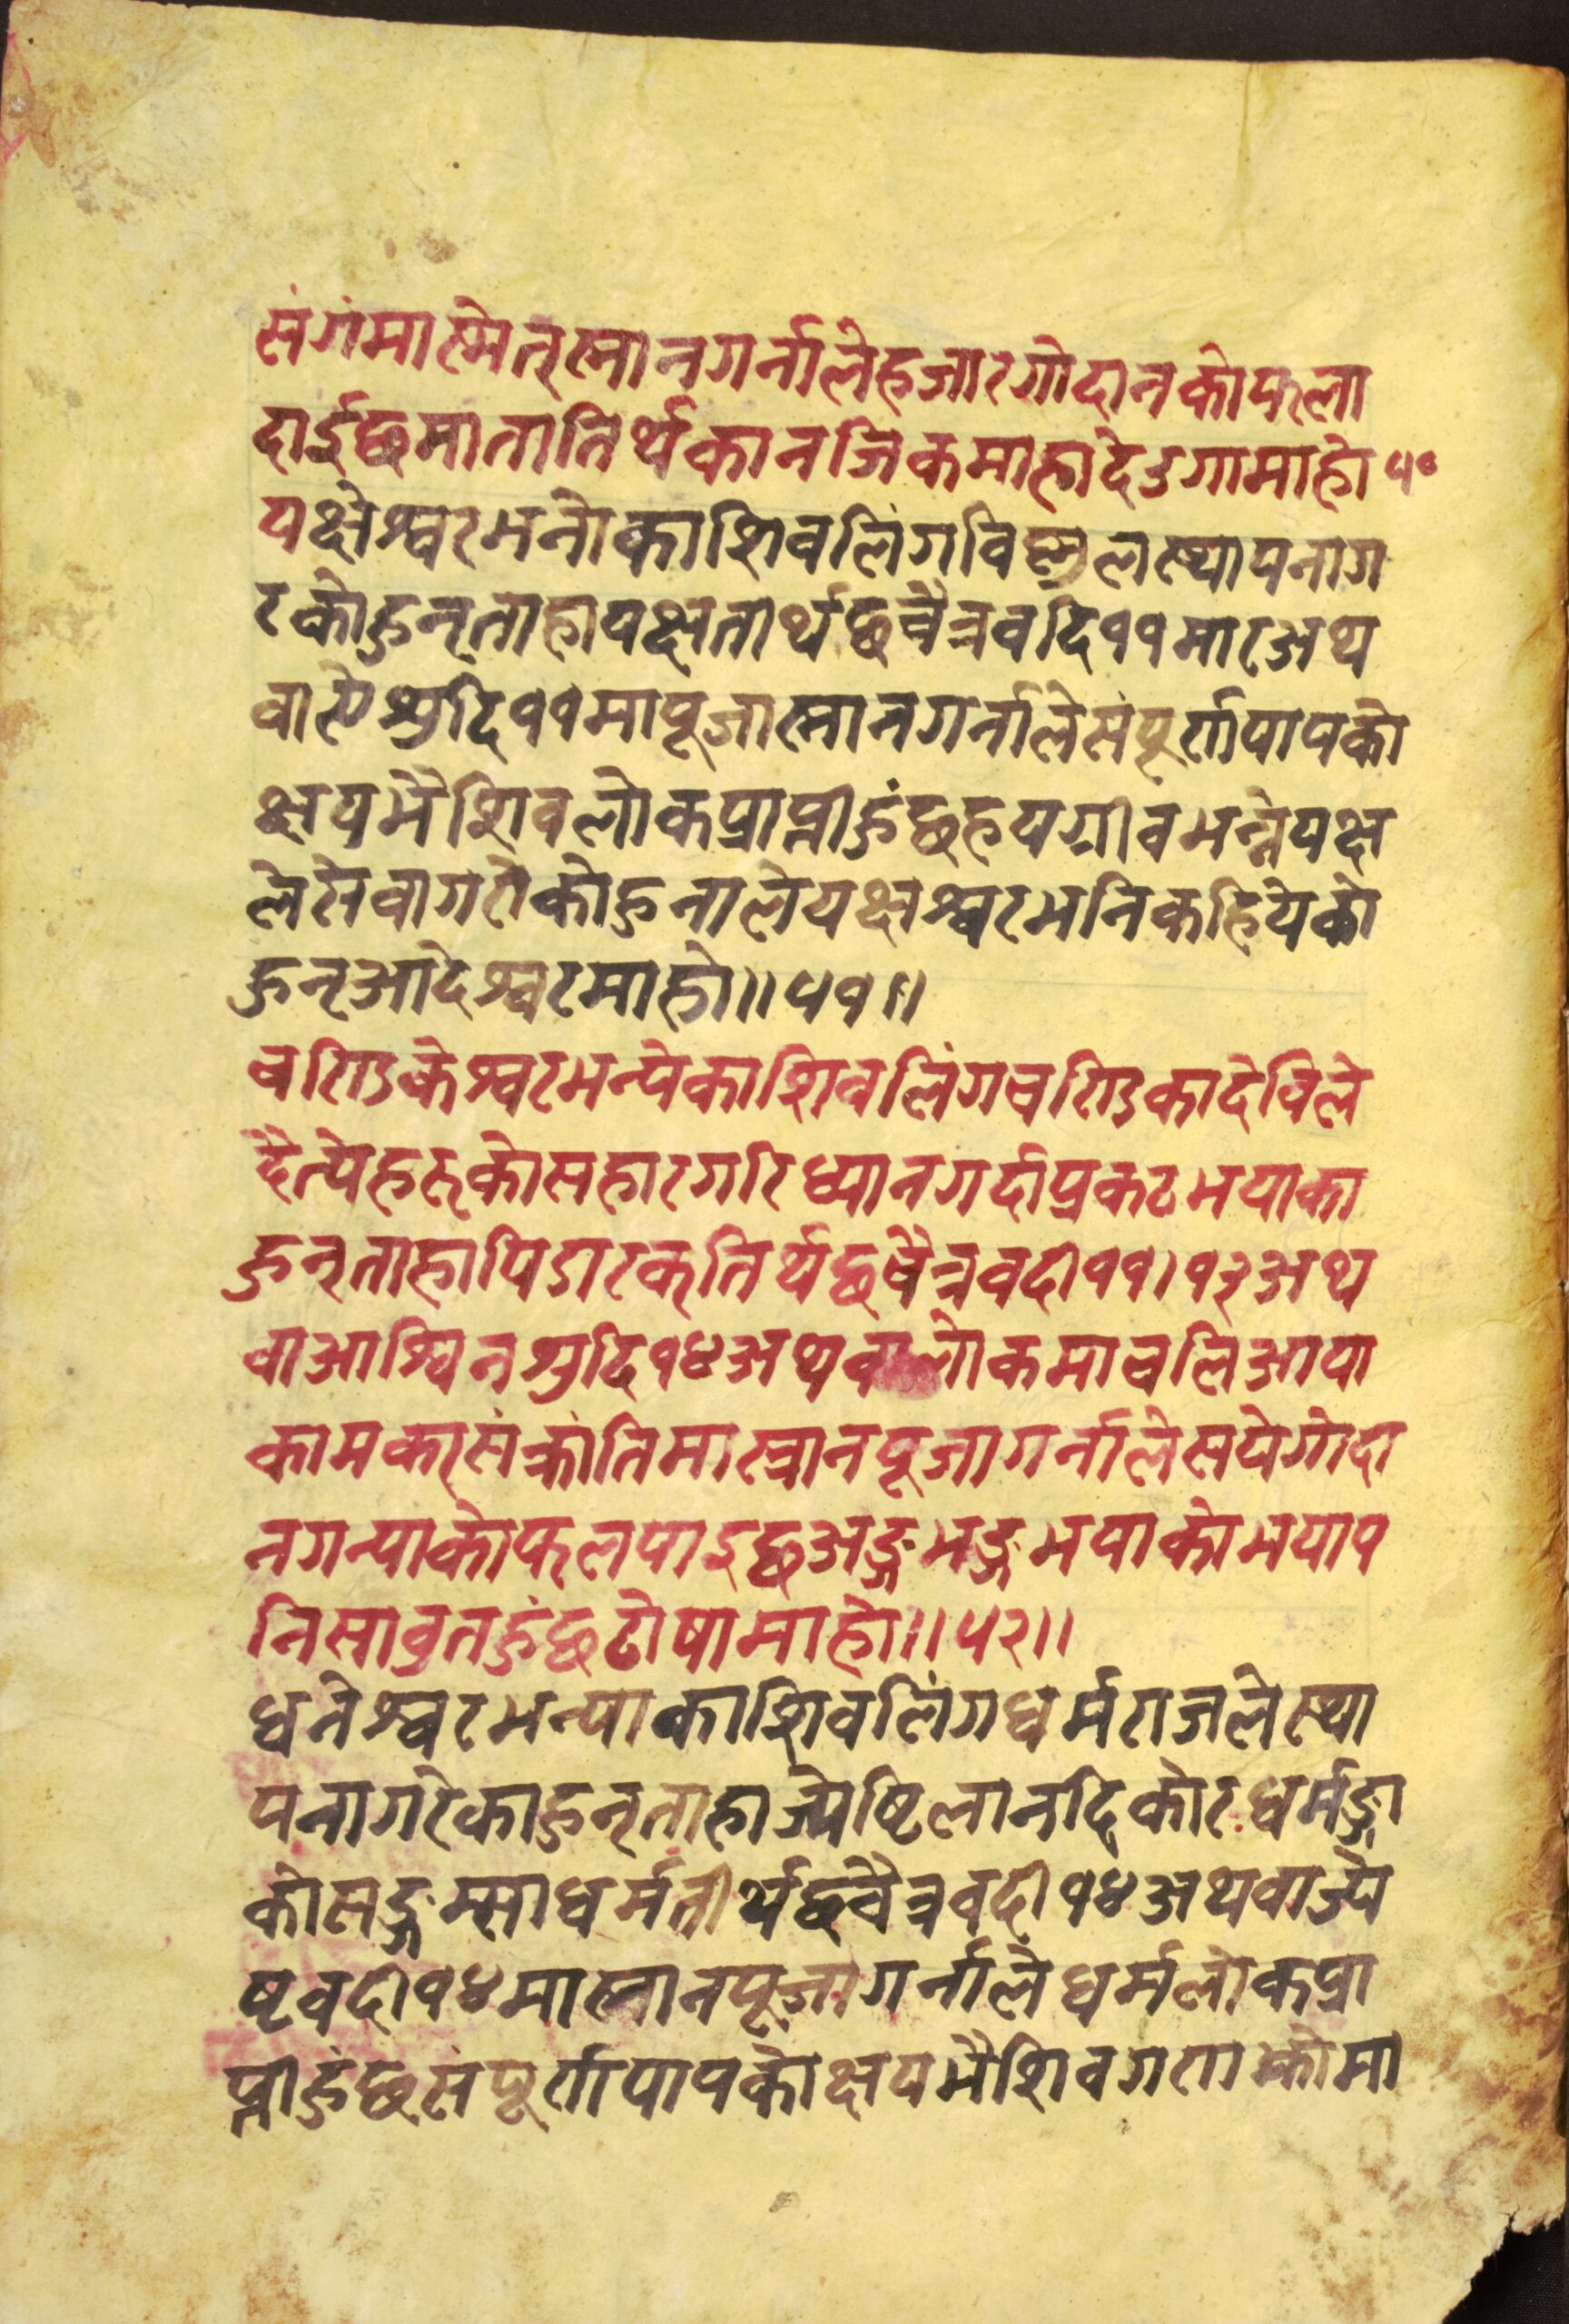 संगंमा स्मेत् स्नानगर्नाले हजार गोदानको फला
दाईछ मातातिर्थका नजिकमाहादेउगामाहो ५०
यक्षेश्वर भनोका शिवलिंग विष्णुल स्थापनाग
रको हुन् ताहा यक्षतीर्थ छ चैत्रवदि ११ मा र अथ
वा स्ये शुदि ११ मा पूजा स्नानगर्नाले संपूर्ण पापको
क्षय भै शिवलोक प्राप्नी हुंछ हयग्रीव भन्ने यक्ष
ले सेवा गरेको हुनाले यक्षश्वर भनि कहियेको
हुन् आदेश्वरमाहो ॥ ५१ ॥
चण्डिकेश्वर भन्येका शिवलिंग चण्डिका देविले
दैत्येहरूको सहार गरि ध्यान गर्दा प्रकट भयाका
हुन् ताहा पिडारक् तिर्थ छ चैत्रवदी ११ । १३ अथ
वा आश्विन शुदि १४ अथवा लोकमा चलिआया
का मकर् संक्रांतिमा स्नान पूजागर्नाले सये गोदा
नगन्याको फल पाइछ अङ्ग भङ्ग भयाको भयाप
नि सावुत हुंछ ढोषामाहो ॥ ५२ ॥
धनेश्वर भन्याका शिवलिंग धर्मराजले स्था
पनागरेका हुन् ताहा ज्येष्टिला नदिको र धर्मङ्गा
को सङ्गम्मा धर्मतीर्थ छ चैत्रवदी १४ अथवा ज्ये
ष्टवदी १४ मा स्नान पूजागर्नाले धर्मलोक प्रा
प्नी हुंछ संपूर्ण पापको क्षय भै शिवगणको मा